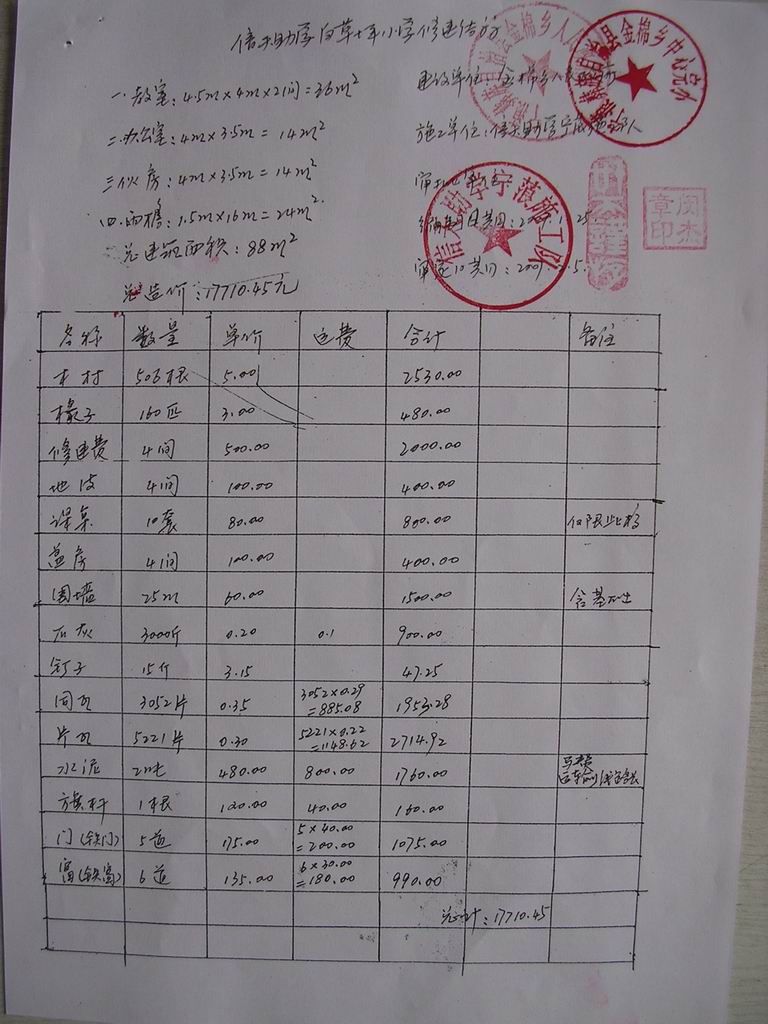 信天助学白草坪小学修建结算
一.教室：4.5m×4m×2间=36m²
二.办公室：4m×3.5m=14m²
三.伙房：4m×3.5m=14m²
四.雨檐：1.5m×16m=24m²
总建筑面积：88m²
总造价：17710.45元
建设单位：金棉乡人民政府
施工单位：信天助学宁蒗施工队
金棉乡中心完小
信天助学宁蒗施工队
章杰印
名称 数量 单价 运费 合计 备注
木材 506根 5.00 2530.00
椽子 160匹 3.00 480.00
修建费 4间 500.00 2000.00
地皮 4间 100.00 400.00
课桌 10套 80.00 800.00
盖房 4间 100.00 400.00
围墙 25m 60.00 1500.00 含基石
石灰 3000斤 0.20 0.1 900.00
钉子 15斤 3.15 47.25
同瓦 3052片 0.35 3052×0.29=885.08 1953.28
片瓦 5221片 0.30 5221×0.22=1148.62 2714.92
水泥 2吨 480.00 800.00 1760.00
1根 120.00 40.00 160.00
门(铁门) 5道 175.00 5×40.00=200.00 1075.00
窗(铁窗) 6道 135.00 6×30.00=180.00 990.00
总计：17710.45